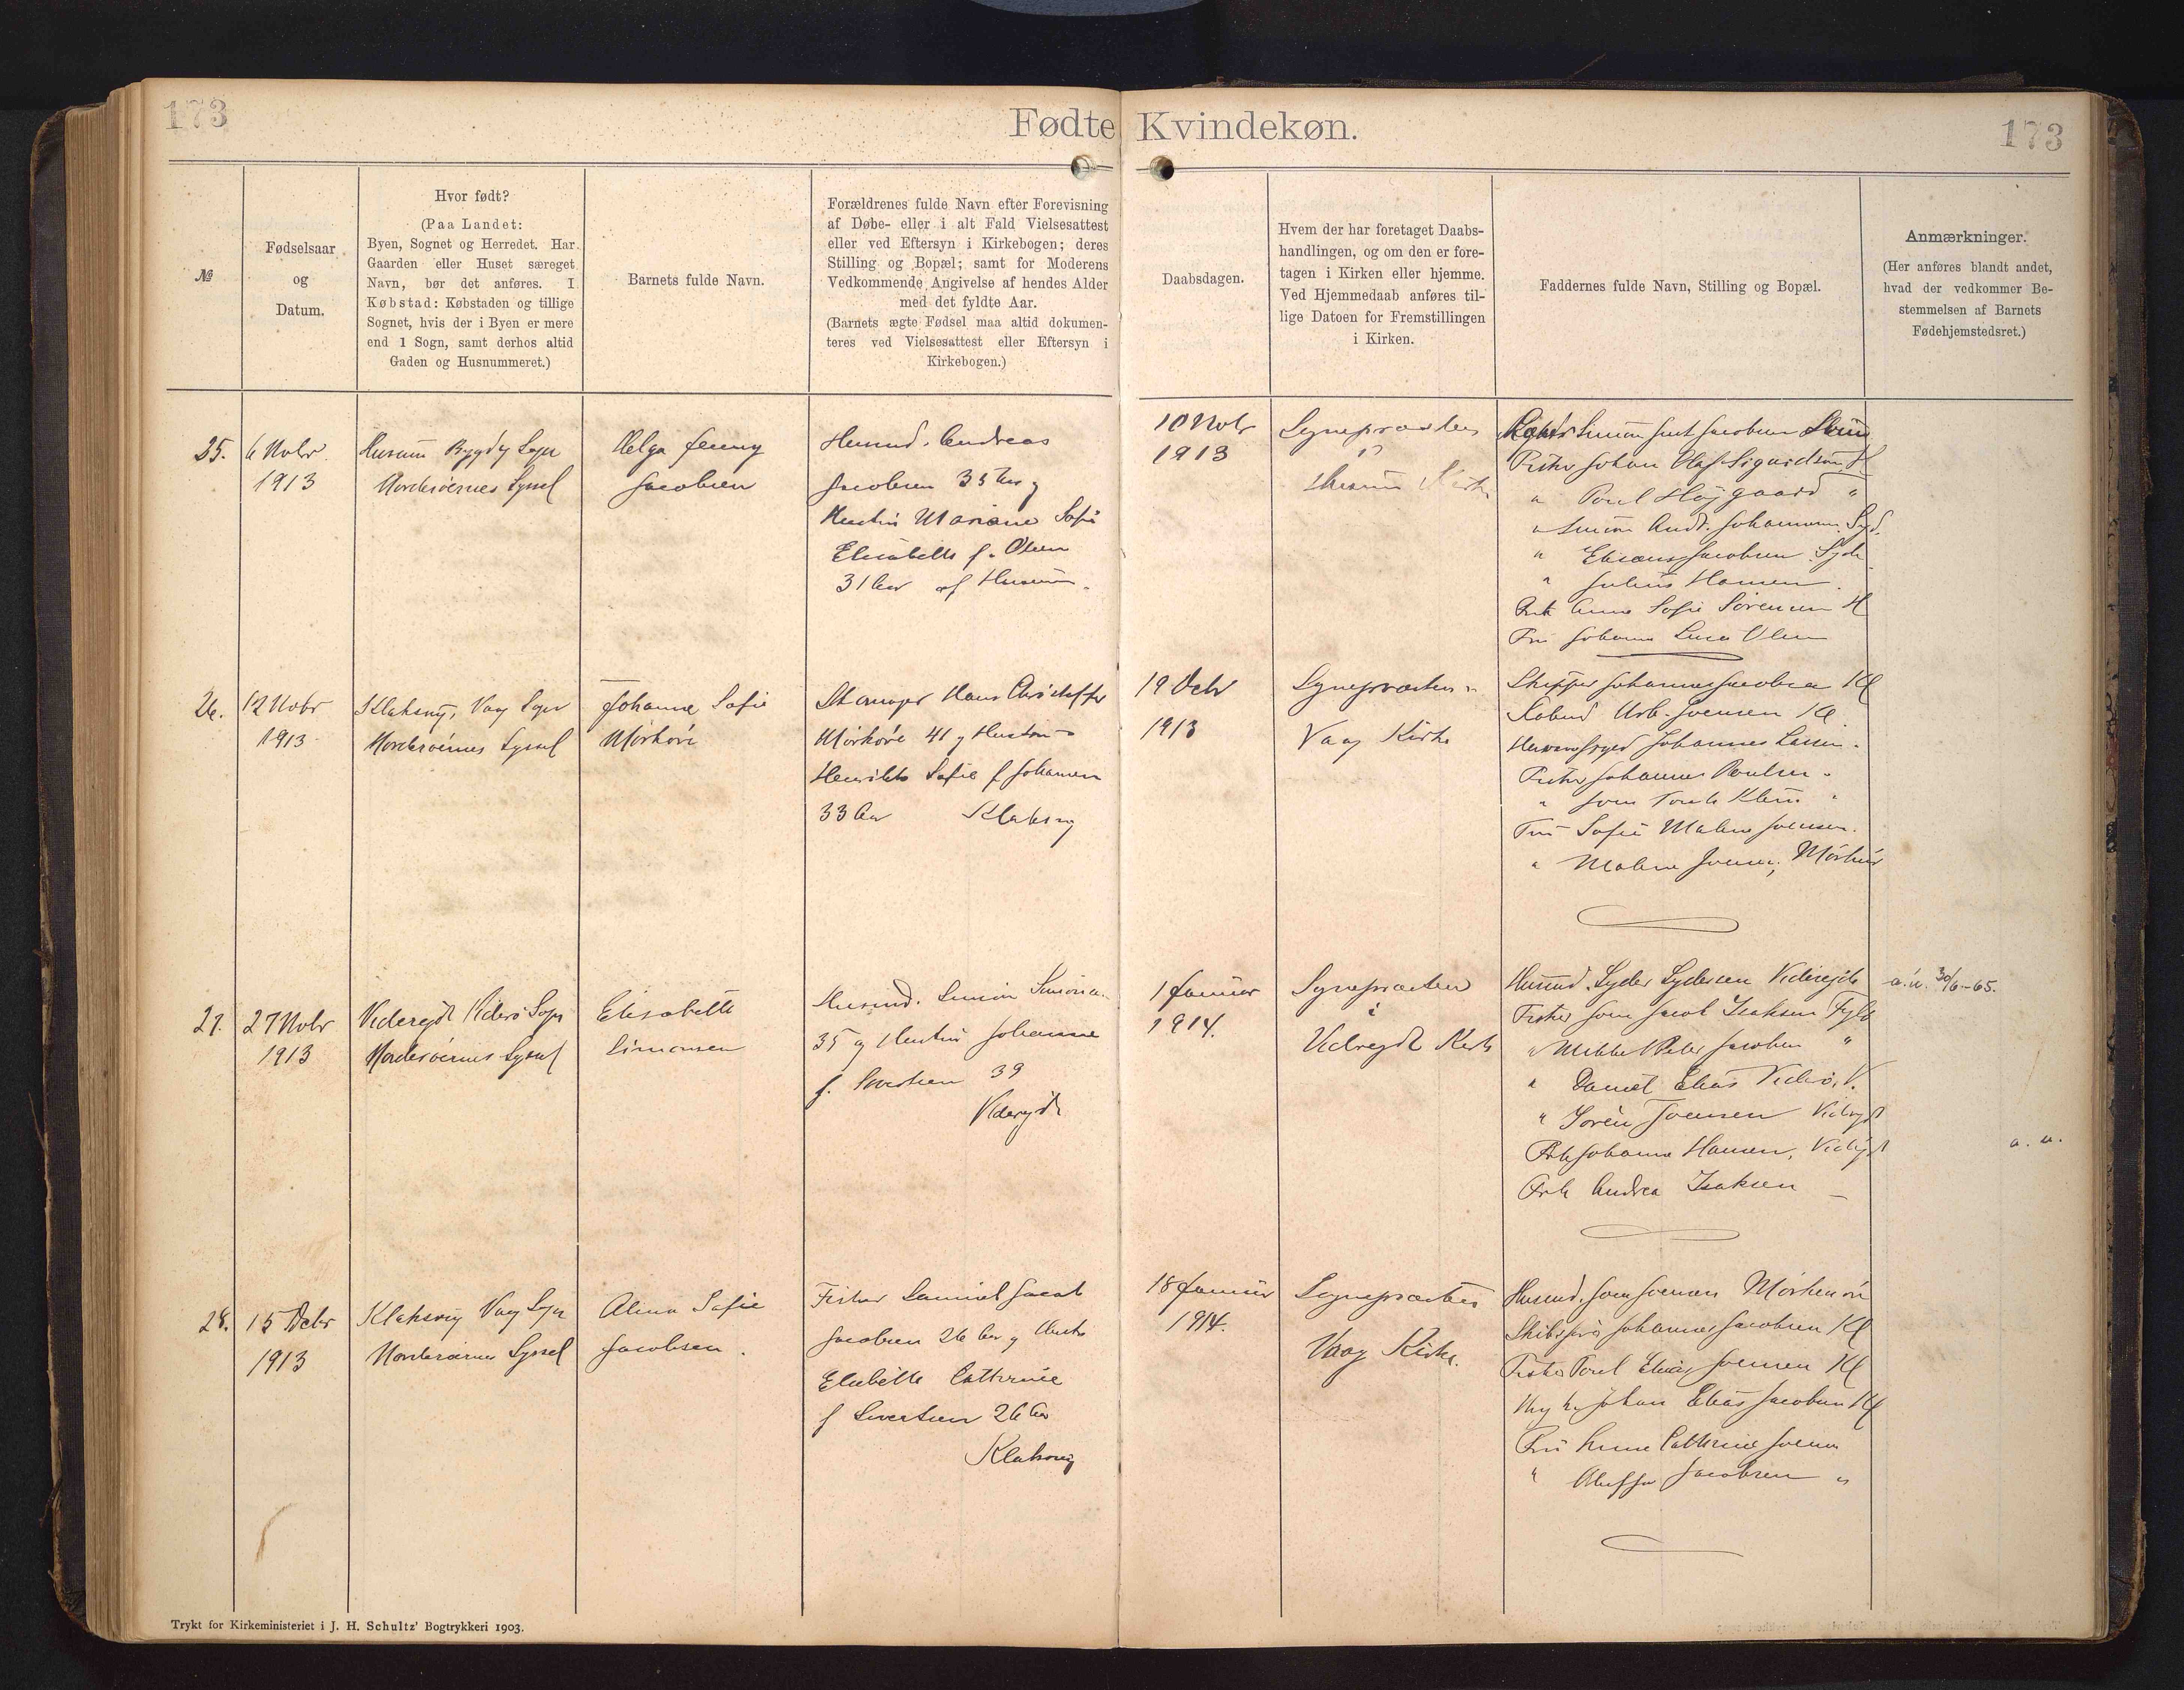 173
Fødte Kvindekøn.
173
№
Fødselsaar
og
Datum.
Hvor født?
(Paa Landet:
Byen, Sognet og Herredet. Har
Gaarden eller Huset særeget
Navn, bør det anføres. I
Købstad: Købstaden og tillige
Sognet, hvis der i Byen er mere
end 1 Sogn, samt derhos altid
Gaden og Husnummeret.)
Barnets fulde Navn.
Forældrenes fulde Navn efter Forevisning
af Døbe- eller i alt Fald Vielsesattest
eller ved Eftersyn i Kirkebogen; deres
Stilling og Bopæl; samt for Moderens
Vedkommende Angivelse af hendes Alder
med det fyldte Aar.
(Barnets ægte Fødsel maa altid dokumen-
teres ved Vielsesattest eller Eftersyn i
Kirkebogen.)
Daabsdagen.
Hvem der har foretaget Daabs-
handlingen, og om den er fore-
tagen i Kirken eller hjemme.
Ved Hjemmedaab anføres til-
lige Datoen for Fremstillingen
i Kirken.
Faddernes fulde Navn, Stilling og Bopæl.
Anmærkninger.
(Her anføres blandt andet,
hvad der vedkommer Be-
stemmelsen af Barnets
Fødehjemstedsret.)
25.
6 Nobr.
1913
Husum Bygdy Sogn
Norderøernes Syssel
Helga Jenny
Jacobsen
Husmd. Andreas
Jacobsen 35 Aar og
Hustru Mariane Sofie
Elisabeth f. Olsen
31 Aar af Husum
10 Nobr
1913
Sognepræsten
i
Husum Kirke
Jacobsen
Fisker Johan Olaf Sigurdson H
" Poul Højgaard "
" Simon Andr. Johannesen Syd.
" Jacobsen Syd
" Julius Hansen
Anna Sofie Sørensen H
Olsen
26.
12 Nobr
1913
Klaksvig, Vaag Sogn
Norderøernes Syssel
Johanne Sofie
Mörköre
Hans Christoffer
Mörköre 41 og Hustru
Henrikke Sofie f Johansen
33 Aar Klaksvig
19 Debr
1913
Sognepræsten i
Vaag Kirke
Skipper Johannes Jacobsen Kl
Joensen Kl.
Johannes Larsen "
Fisker Johannes Poulsen "
Sofie Malene Joensen.
" Malene Joensen,
27.
27 Nobr
1913
Videregde Viderø Sogn
Norderøernes Syssel
Elisabeth
Simonsen
Husmd. Simon Simonsen
35 og Hustru Johanne
f. Sivertsen 39
Videregde
1 Januar
1914.
Sognepræsten
i
Vidregde Kirke
Husmd. Lyder Lydersen Videregde
Fisker Joen Jacob Isaksen Fugló
" Mikkel Peter Jacobsen "
" Daniel Elias Viderø, V.
" Sören Joensen
Johanne Hansen,
Andrea Isaksen
a. u. 30/6-65.
a. u.
28.
15 Debr
1913
Klaksvig Vaag Sogn
Norderøernes Syssel
Alma Sofie
Jacobsen.
Fisker Daniel Jacob
Jacobsen 26 Aar og Hustru
Elsebeth Cathrine
f Sivertsen 26 Aar
Klaksvig
18 Januar
1914.
Sognepræsten
Vaag Kirke.
Husmd. Joen Joensen
Johannes Jacobsen Kl
Fisker Poul Elias Joensen Kl
Johan Elias Jacobsen Kl
Anne Cathrine Joensen
" Jacobsen "
Trykt for Kirkeministeriet i J. H. Schultz' Bogtrykkeri 1903.